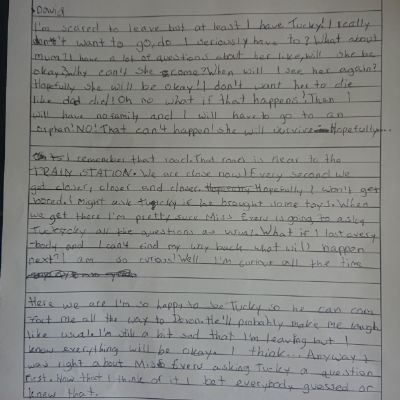 David
I'm scared to leave but at least I have Tucky! I really
don't want to go, do I seriously have to? What about
mum? I have a lot of questions about her like, will she be
okay? Why can't she come? When will I see her again?
Hopefully she will be okay! I don't want her to die
like dad did! Oh no what if that happens! Then I
will have no family and I will have to go to an
orphan! NO! That can't happen! She will survive Hopefully...
I remember that road. That road is near to the
TRAIN STATION. We are close now! Every second we
get closer, closer and closer. Hopefully I won't get
bored. I might ask tucky if he brought some toys. When
we get there I'm pretty sure Miss Every is going to ask
Tucky all the questions as usual. What if I lost every
-body and I can't find my way back what will happen
next? I am so curious! Well I'm curious all the time
Here we are I'm so happy to see Tucky so he can
me all the way to Devon. He'll probably make me laugh
like usual. I'm still a bit sad that I'm leaving but I
know everything will be okay. I think... Anyway I
was right about Miss Every asking Tucky a question
first. Now that I think of it I bet everybody guessed or
knew that.